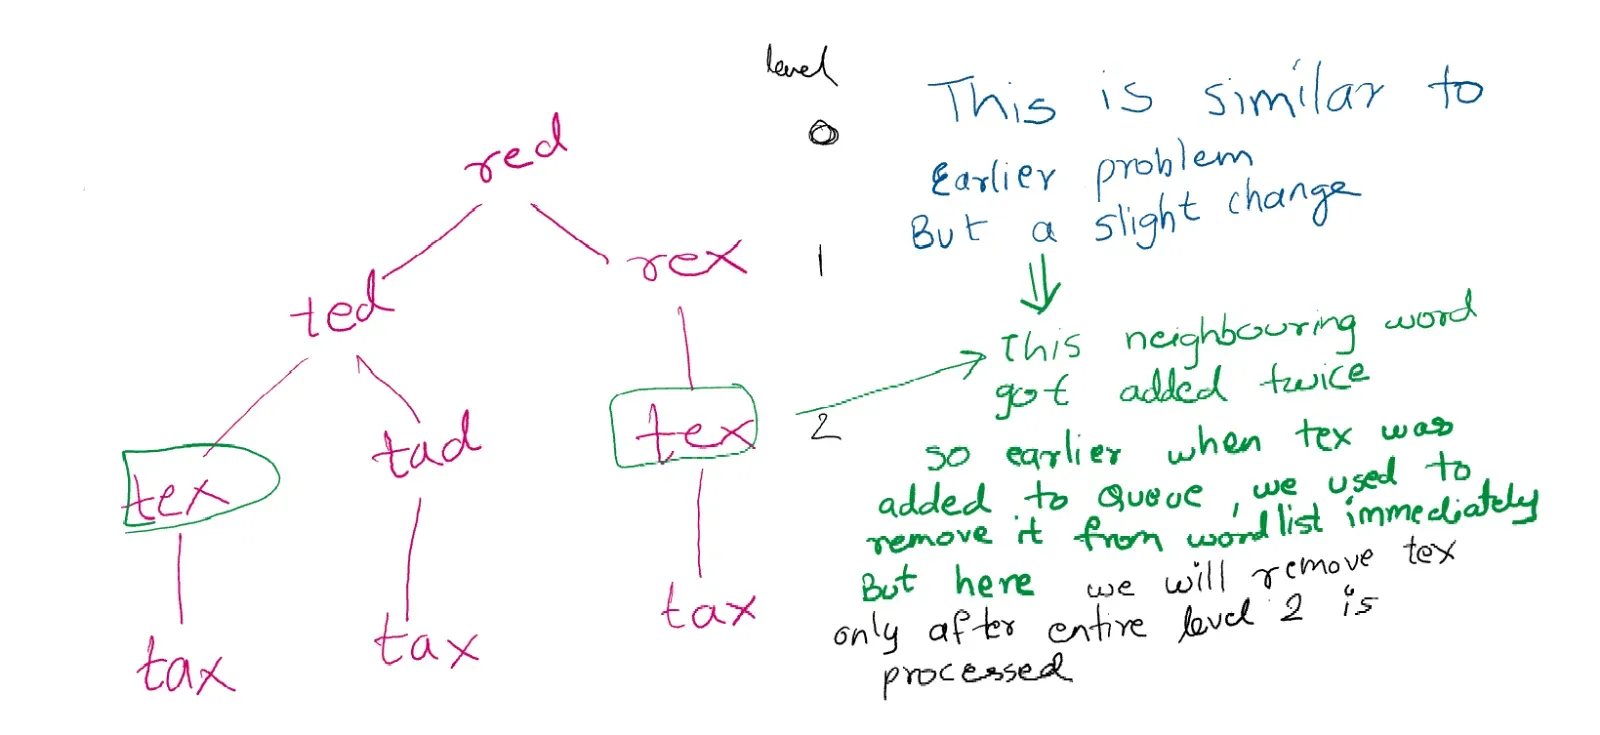 level
0
red
1
ted
rex
2
tex
tad
tex
tax
tax
tax
This is similar to
Earlier problem
But a slight change
This neighbouring word
got added twice
so earlier when tex was
added to Queue, we used to
remove it from wordlist immediately
But here we will remove tex
only after entire level 2 is
processed